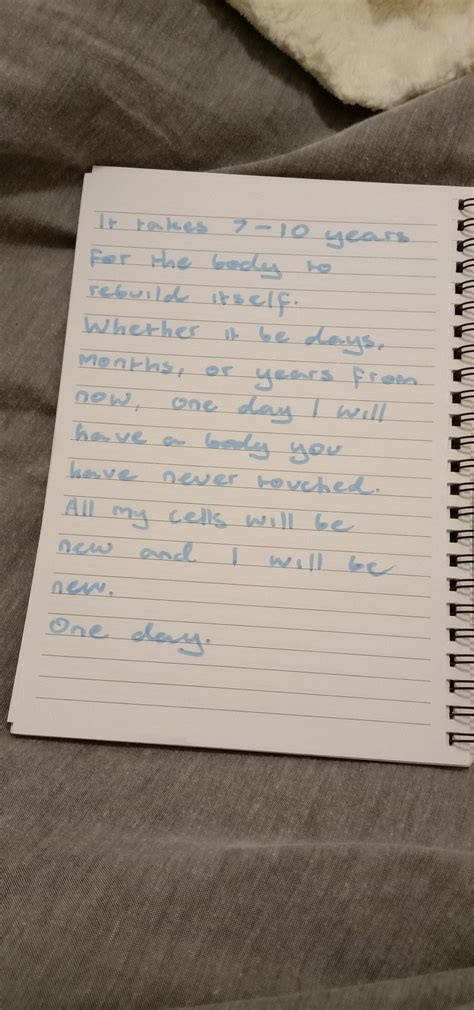 It takes 7-10 years
for the body to
rebuild itself.
Whether it be days,
months, or years from
now, one day I will
have a body you
have never touched.
All my cells will be
new and I will be
new.
One day.